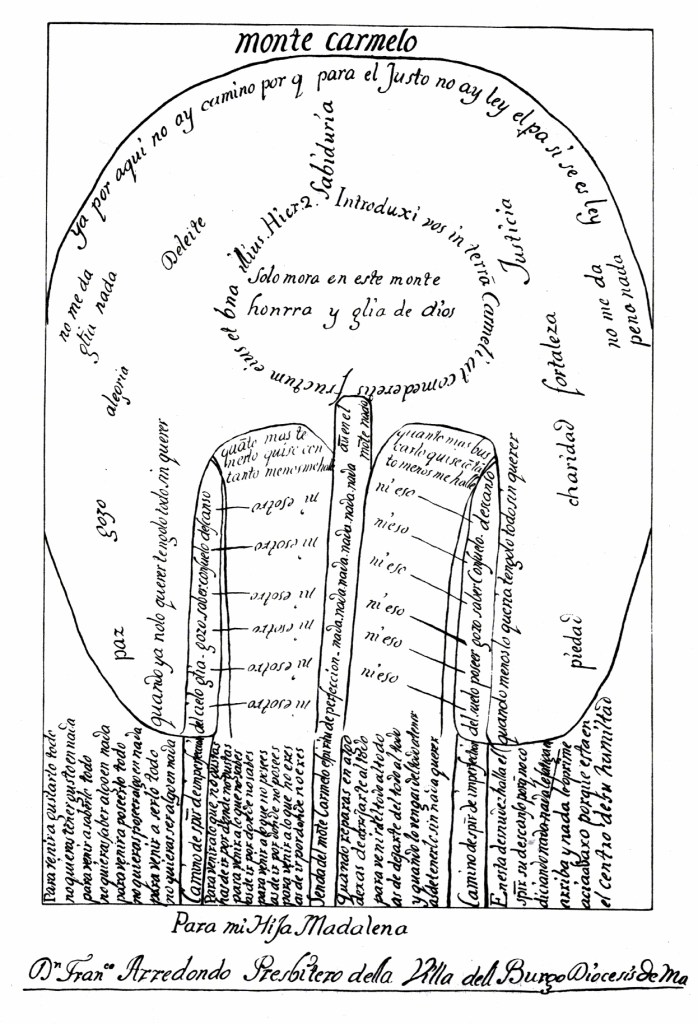 monte carmelo
Ya por aqui no ay camino por q para el Justo no ay ley el pa si se es ley
Sabiduria
Deleite
Justicia
no me da
glia nada
no me da
pena nada
alegria
fortaleza
gozo
charidad
paz
piedad
Introduxi vos in terrã Carmeli ut comederetis fructum eius et bna illius. Hier. 2.
Solo mora en este monte
honrra y glia de dios
quando ya nolo querer tengolo todo sin querer
quãto mas te
nerlo quise con
tanto menos me halle
aũ en el
mõte nada
quanto mas bus
carlo quise cõ tã
to menos me halle
del cielo glia. gozo. saber. consuelo. descanso
ni esotro
ni esotro
ni esotro
ni esotro
ni esotro
ni esotro
ni eso
ni eso
ni eso
ni eso
ni eso
ni eso
del suelo poseer gozo saber consuelo. descanso
quando menos lo queria tengolo todo sin querer
Para venir a gustarlo todo
no quieras tener gusto en nada
para venir a saberlo todo
no quieras saber algo en nada
para venir a poseerlo todo
no quieras poseer algo en nada
para venir a serlo todo
no quieras ser algo en nada
Camino de spũ de imperfeccion
Para venir a lo que no gustas
has de ir por donde no gustas
para venir a lo que no sabes
as de ir por donde no sabes
para venir a lo que no posees
as de ir por donde no posees
para venir a lo que no eres
as de ir por donde no eres
Senda del mõte Carmelo espiritu de perfeccion. nada. nada. nada. nada. nada. nada
quando reparas en algo
dexas de arrojarte al todo
para venir del todo al todo
as de dejarte del todo al todo
y quando lo vengas del todo a tener
as de tenerlo sin nada querer
Camino de spũ de imperfecciõ
En esta desnudez halla el
spũ su descanso
arriba y nada le oprime
acia abaxo porque esta en
el centro de su humildad
Para mi Hija Madalena
Dⁿ Franᶜᵒ Arredondo Presbitero della Villa dell Burgo Diocesis de Ma